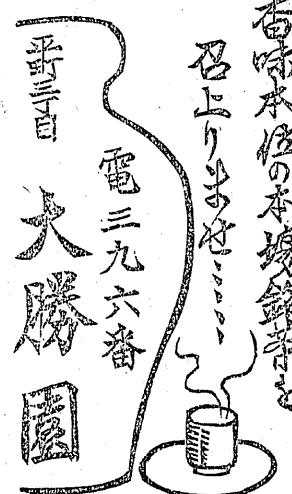 香味本位の本場銘茶を
召上りませ……
電三九六番
平町三丁目
大勝園